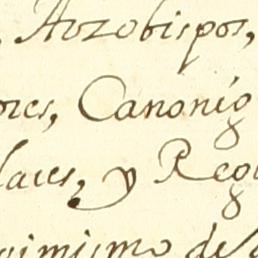 Arzobispos,
ores, Canonig
laces, y Reg
simismo de